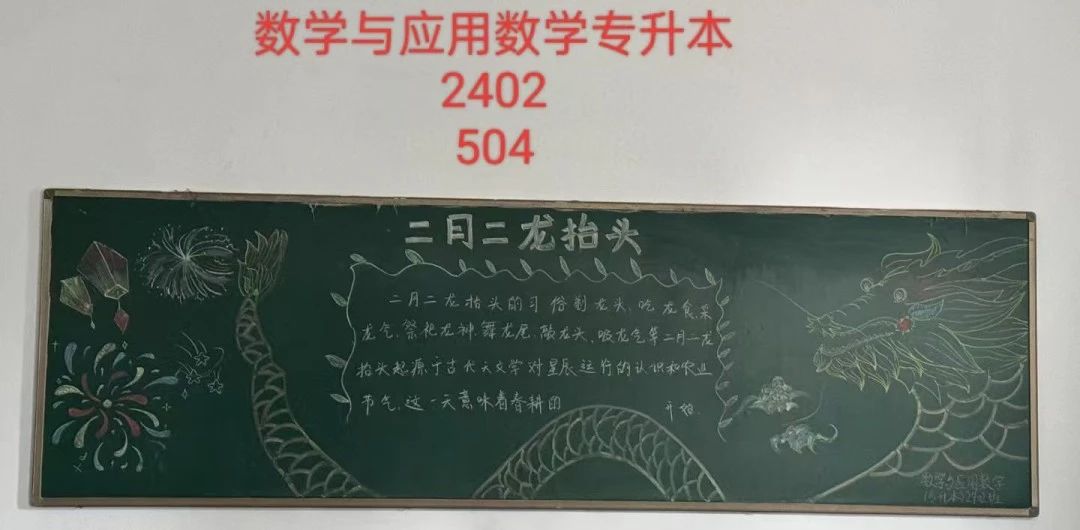 数学与应用数学专升本
2402
504
二月二龙抬头
二月二龙抬头的习俗剃龙头、吃龙食、采
龙气、祭祀龙神、舞龙尾、敲龙头、吸龙气等二月二龙
抬头起源于古代天文学对星辰运行的认识和农业
节气、这一天意味着春耕的 开始
数学与应用数学
(专升本)2402班